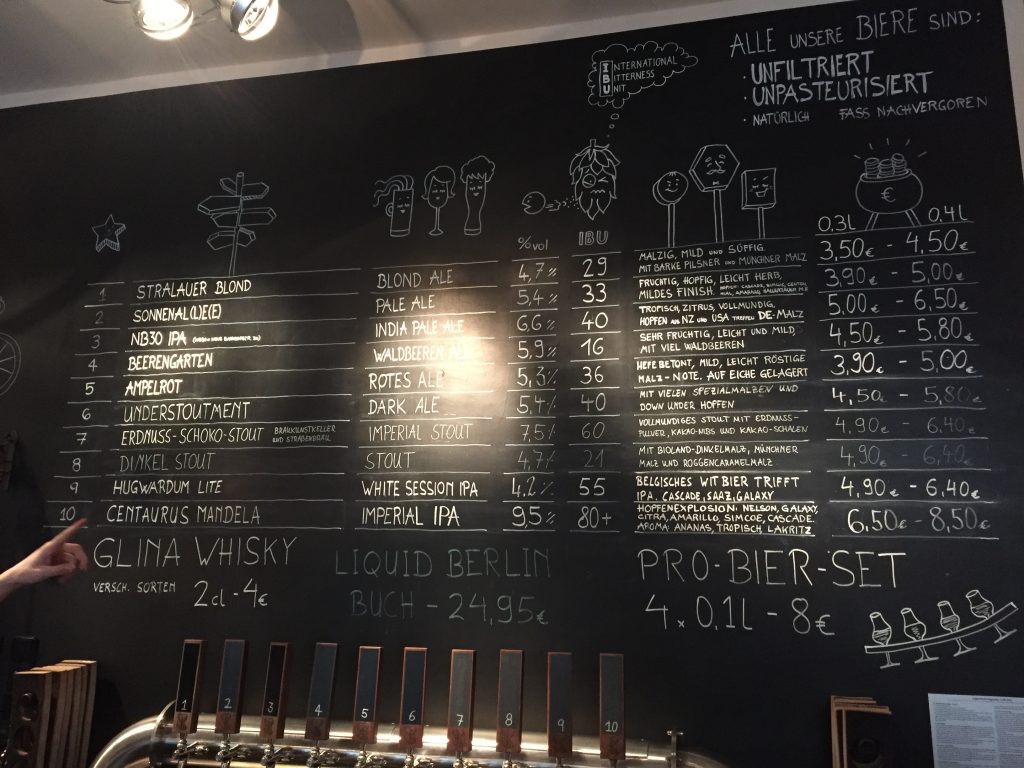 INTERNATIONAL
BITTERNESS
UNIT
ALLE UNSERE BIERE SIND:
· UNFILTRIERT
· UNPASTEURISIERT
· NATÜRLICH FASS NACHVERGOREN
€
0,3L 0,4L
%vol IBU
1 STRALAUER BLOND BLOND ALE 4,7% 29 MALZIG, MILD UND SÜFFIG 3,50€ - 4,50€
MIT BARKE PILSNER UND MÜNCHNER MALZ
2 SONNENAL(L)E(E) PALE ALE 5,4% 33 FRUCHTIG, HOPFIG, LEICHT HERB, 3,90€ - 5,00€
MILDES FINISH.
3 NB30 IPA INDIA PALE ALE 6,6% 40 TROPISCH, ZITRUS, VOLLMUNDIG, 5,00€ - 6,50€
HOPFEN AUS NZ UND USA TREFFEN DE-MALZ
4 BEERENGARTEN WALDBEEREN ALE 5,9% 16 SEHR FRUCHTIG, LEICHT UND MILD 4,50€ - 5,80€
MIT VIELEN WALDBEEREN
5 AMPELROT ROTES ALE 5,3% 36 HEFE BETONT, MILD, LEICHT RÖSTIGE 3,90€ - 5,00€
MALZ-NOTE. AUF EICHE GELAGERT
6 UNDERSTOUTMENT DARK ALE 5,4% 40 MIT VIELEN SPEZIALMALZEN UND 4,50€ - 5,80€
DOWN UNDER HOPFEN
7 ERDNUSS-SCHOKO-STOUT BRAUKUNSTKELLER IMPERIAL STOUT 7,5% 60 VOLLMUNDIGES STOUT MIT ERDNUSS- 4,90€ - 6,40€
UND STRAßENBRÄU PULVER, KAKAO-NIBS UND KAKAO-SCHALEN
8 DINKEL STOUT STOUT 4,7% 21 MIT BIOLAND-DINKELMALZ, MÜNCHNER 4,90€ - 6,40€
MALZ UND ROGGENCARAMELMALZ
9 HUGWARDUM LITE WHITE SESSION IPA 4,2% 55 BELGISCHES WITBIER TRIFFT 4,90€ - 6,40€
IPA. CASCADE, SAAZ, GALAXY
10 CENTAURUS MANDELA IMPERIAL IPA 9,5% 80+ HOPFENEXPLOSION: NELSON, GALAXY, 6,50€ - 8,50€
CITRA, AMARILLO, SIMCOE, CASCADE.
AROMA: ANANAS, TROPISCH, LAKRITZ
GLINA WHISKY
VERSCH. SORTEN 2cl - 4€
LIQUID BERLIN
BUCH - 24,95€
PRO-BIER-SET
4 x 0,1L - 8€
1 2 3 4 5 6 7 8 9 10